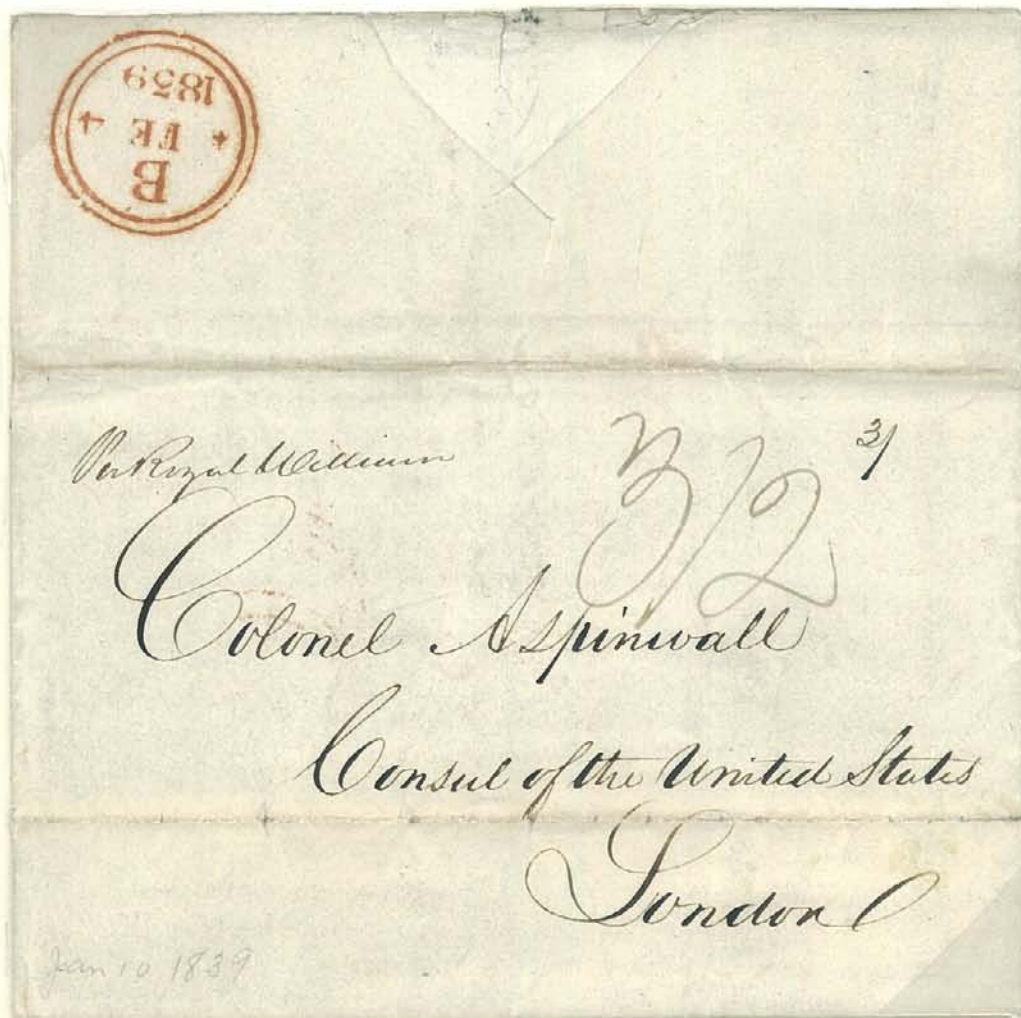 B
FE 4
1839
Per Royal William
3/2
3/
Colonel Aspinwall
Consul of the United States
London
Jan 10 1839